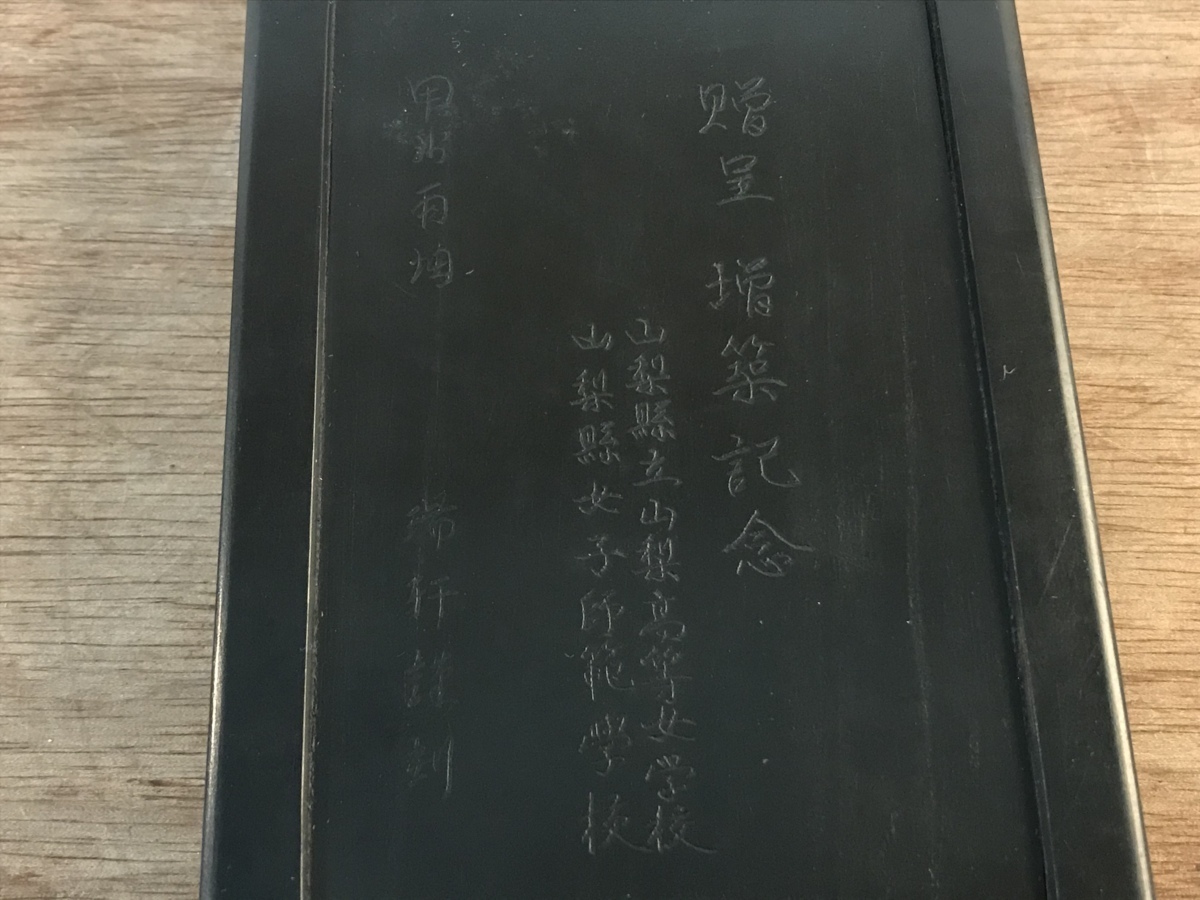 贈呈 増築記念
山梨縣立山梨高等女学校
山梨縣女子師範學校
甲州雨畑 謹刻